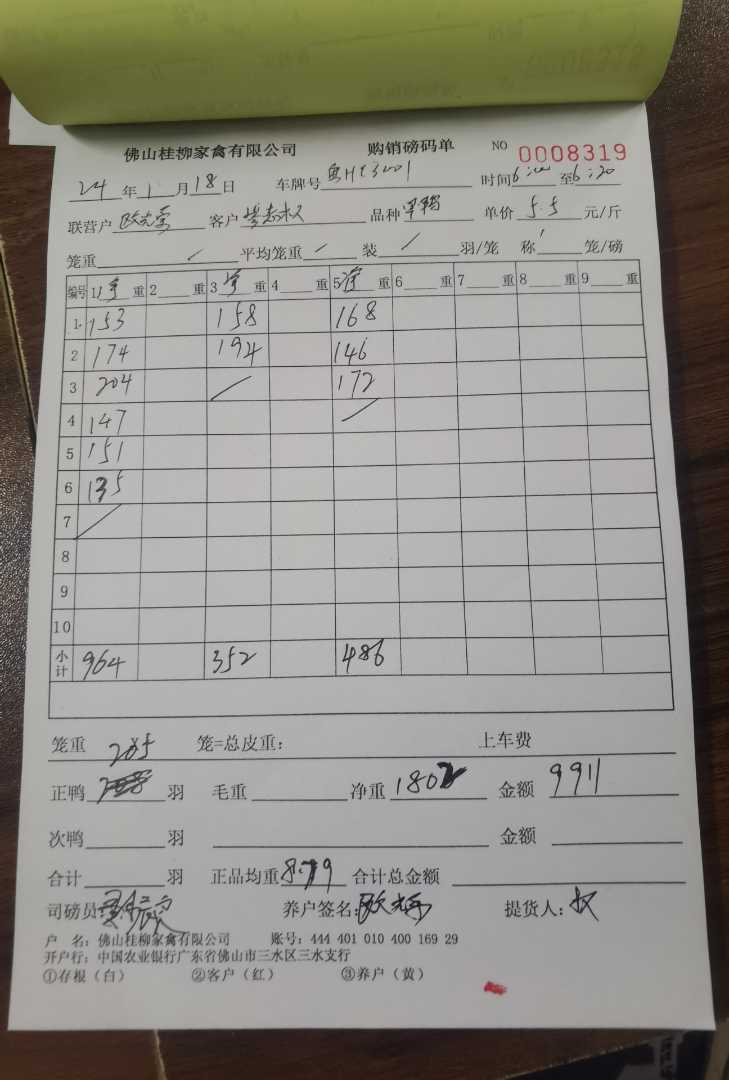 佛山桂柳家禽有限公司 购销磅码单 NO 0008319
24年1月18日 车牌号 时间6:00至6:20
联营户 客户 品种 单价5.5元/斤
笼重 / 平均笼重 / 装 / 羽/笼 称 笼/磅
编号 1净重 2 重 3净重 4 重 5净重 6 重 7 重 8 重 9 重
1 153 158 168
2 174 194 146
3 204 / 172
4 147 /
5 151
6 135
7 /
8
9
10
小计 964 352 486
笼重 205 笼=总皮重: 上车费
正鸭 羽 毛重 净重1802 金额9911
次鸭 羽 金额
合计 羽 正品均重8.79 合计总金额
司磅员: 养户签名: 提货人:
户 名: 佛山桂柳家禽有限公司 账号: 444 401 010 400 169 29
开户行: 中国农业银行广东省佛山市三水区三水支行
①存根（白） ②客户（红） ③养户（黄）